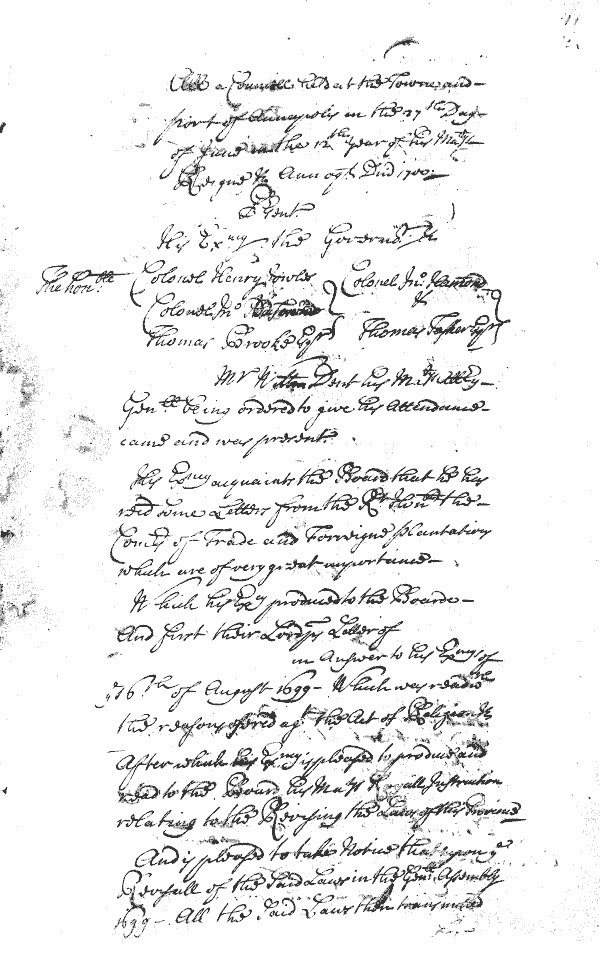 Att a Councill held at the Towne and
port of Annapolis in the 27th Day
of June in the 12th year of his Maty
Reigne &c Annoq Dni 1700
Present
His Exncy the Governor &c
The honble Colonel Henry Jowles Colonel Jno Hamond
Colonel Jno &c
Thomas Brooke Esqr Thomas Tasker Esqr
Mr Willm Dent his Matys Atty
Genll being ordered to give his Attendance
came and was present.
His Exncy acquaints the Board that he has
recd some Letters from the Rt Honble the
Comrs of Trade and Forreigne plantations
which are of very great importance
Which his Exncy produced to the Board
And first their Lordsps Letter of
in Answer to his Exncys of
ye 16th of August 1699 - Which was read
the reasons offered agt the Act of Religion &c
After which his Exncy is pleased to produce and
read to the Board his Matys Royall Instruction
relating to the Revising the Laws of this Province
And is pleased to take Notice that upon ye
Revisall of the said Laws in the Genll Assembly
1699 - All the said Laws then transmitted